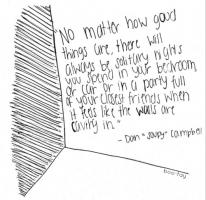 No matter how good
things are, there will
always be solitary nights
you spend in your bedroom
or car or in a party full
of your closest friends when
it feels like the walls are
caving in."
- Dan "Soupy" Campbell